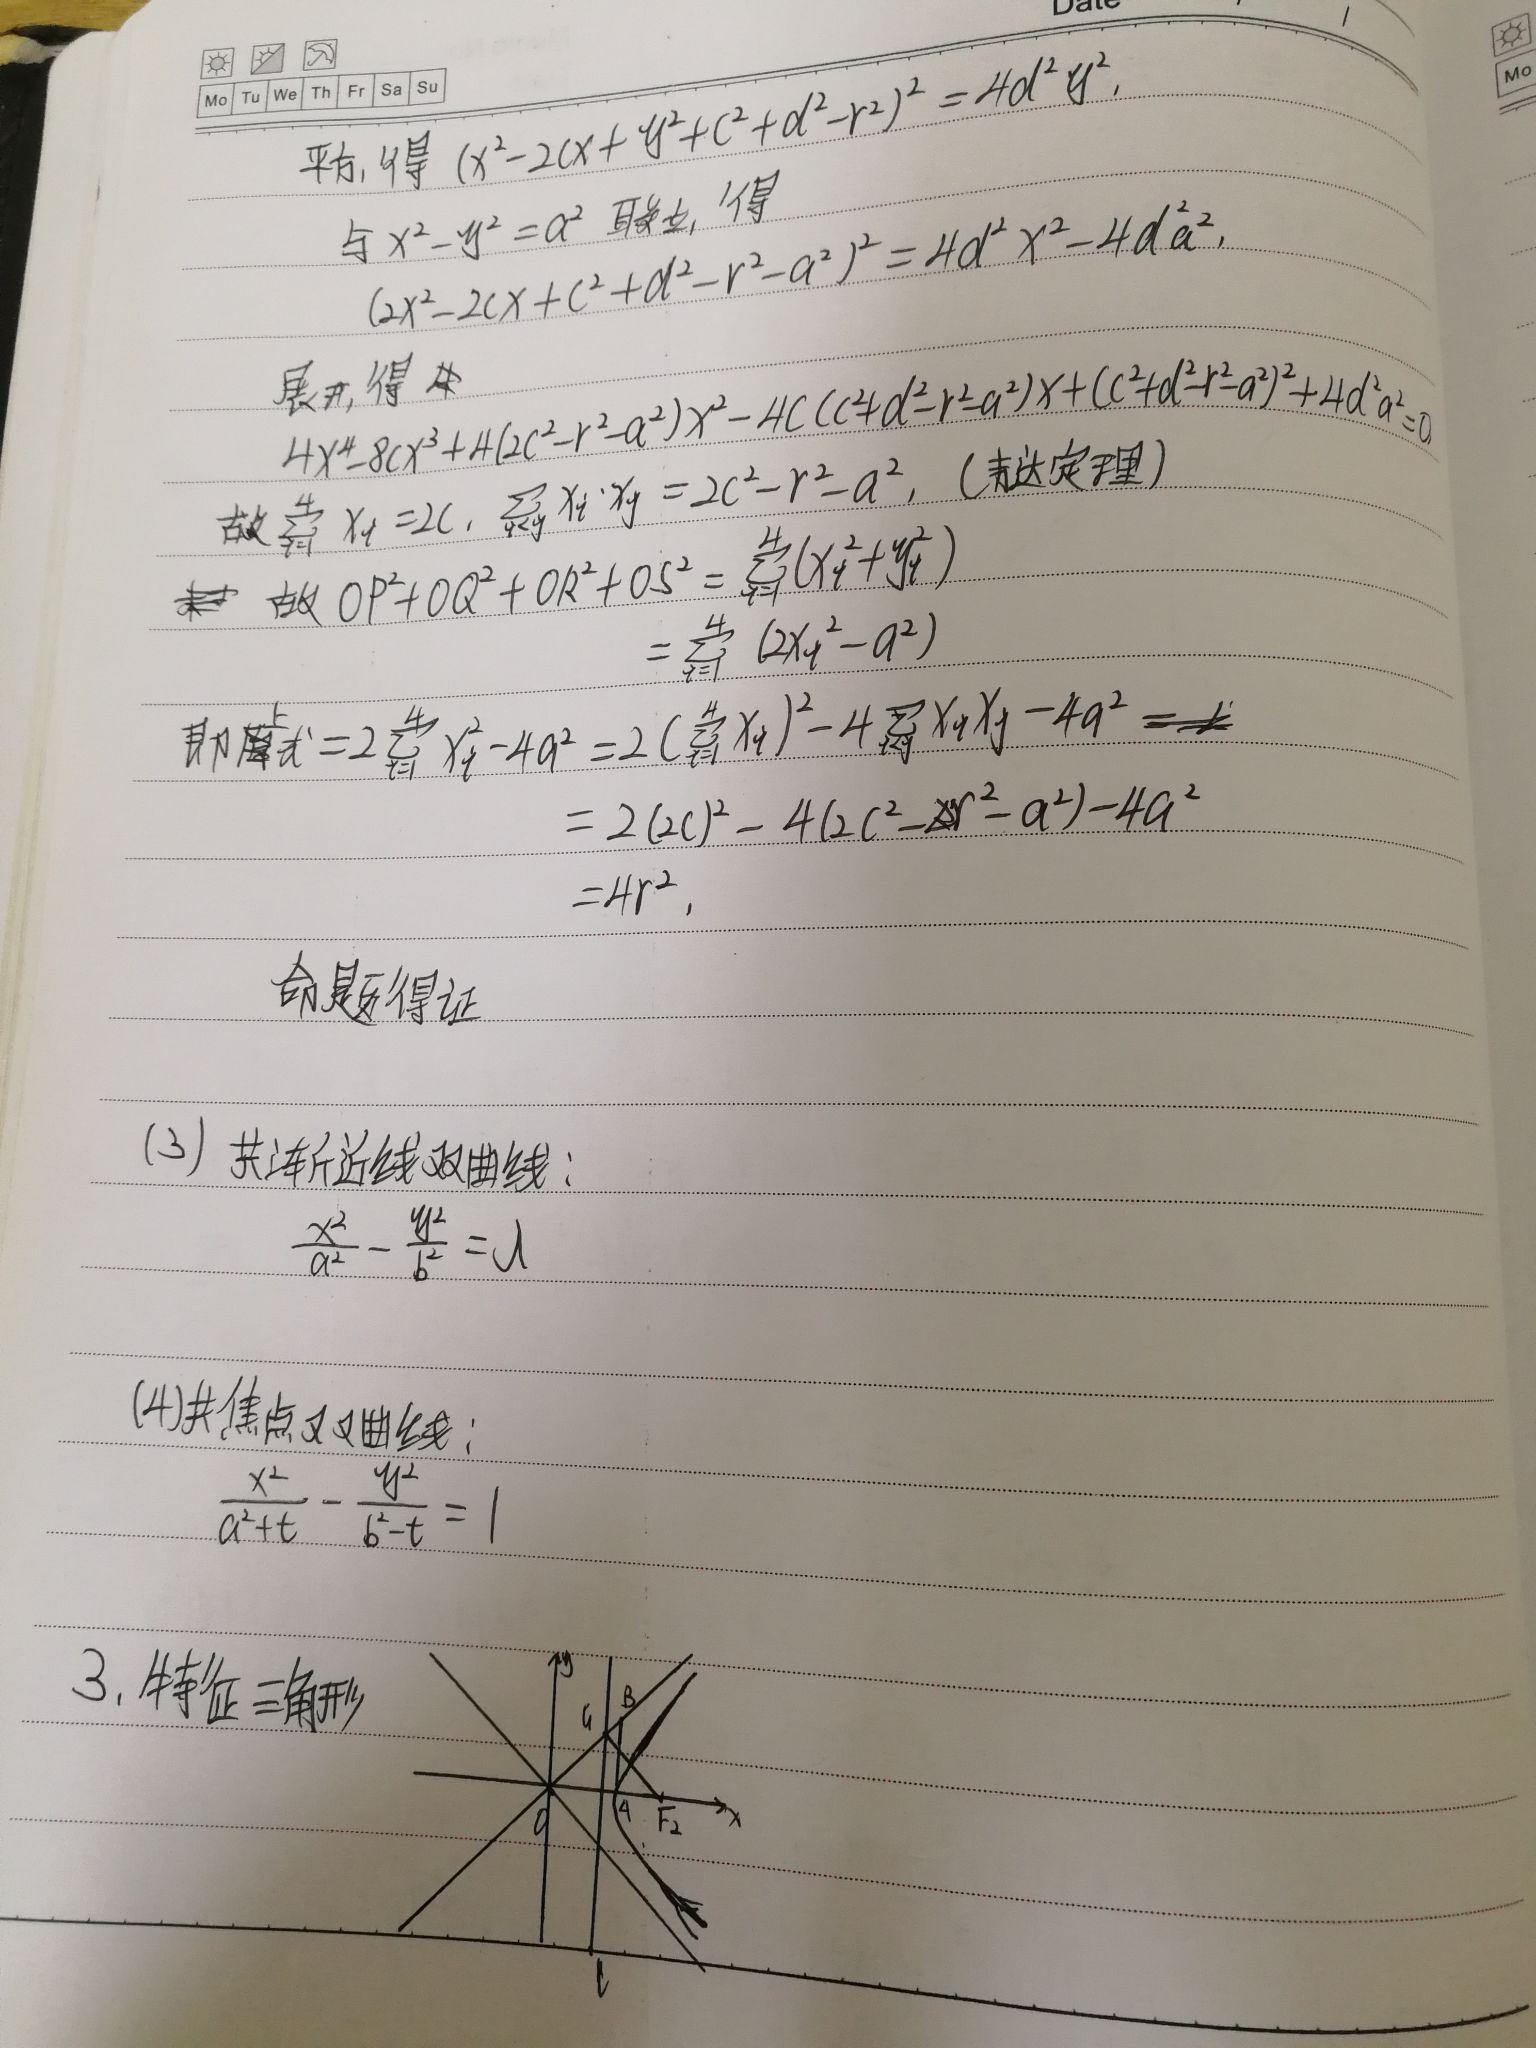 Date
Mo Tu We Th Fr Sa Su
Mo
平方,得 (x²-2cx+y²+c²+d²-r²)²=4d²y².
与x²-y²=a² 联立,得
(2x²-2cx+c²+d²-r²-a²)²=4d²x²-4d²a².
展开,得
4x⁴-8cx³+4(2c²-r²-a²)x²-4c(c²+d²-r²-a²)x+(c²+d²-r²-a²)²+4d²a²=0
故 ∑_{i=1}^{4} x_i=2c, ∑_{i<j} x_i·x_j=2c²-r²-a², (韦达定理)
故 OP²+OQ²+OR²+OS²=∑_{i=1}^{4}(x_i²+y_i²)
=∑_{i=1}^{4}(2x_i²-a²)
即上式=2∑_{i=1}^{4}x_i²-4a²=2(∑_{i=1}^{4}x_i)²-4∑_{i<j}x_ix_j-4a²
=2(2c)²-4(2c²-r²-a²)-4a²
=4r².
命题得证
(3) 共渐近线双曲线:
x²/a² - y²/b² = λ
(4) 共焦点双曲线:
x²/(a²+t) - y²/(b²-t) = 1
3. 特征三角形
y
G B
O A F₂ x
l